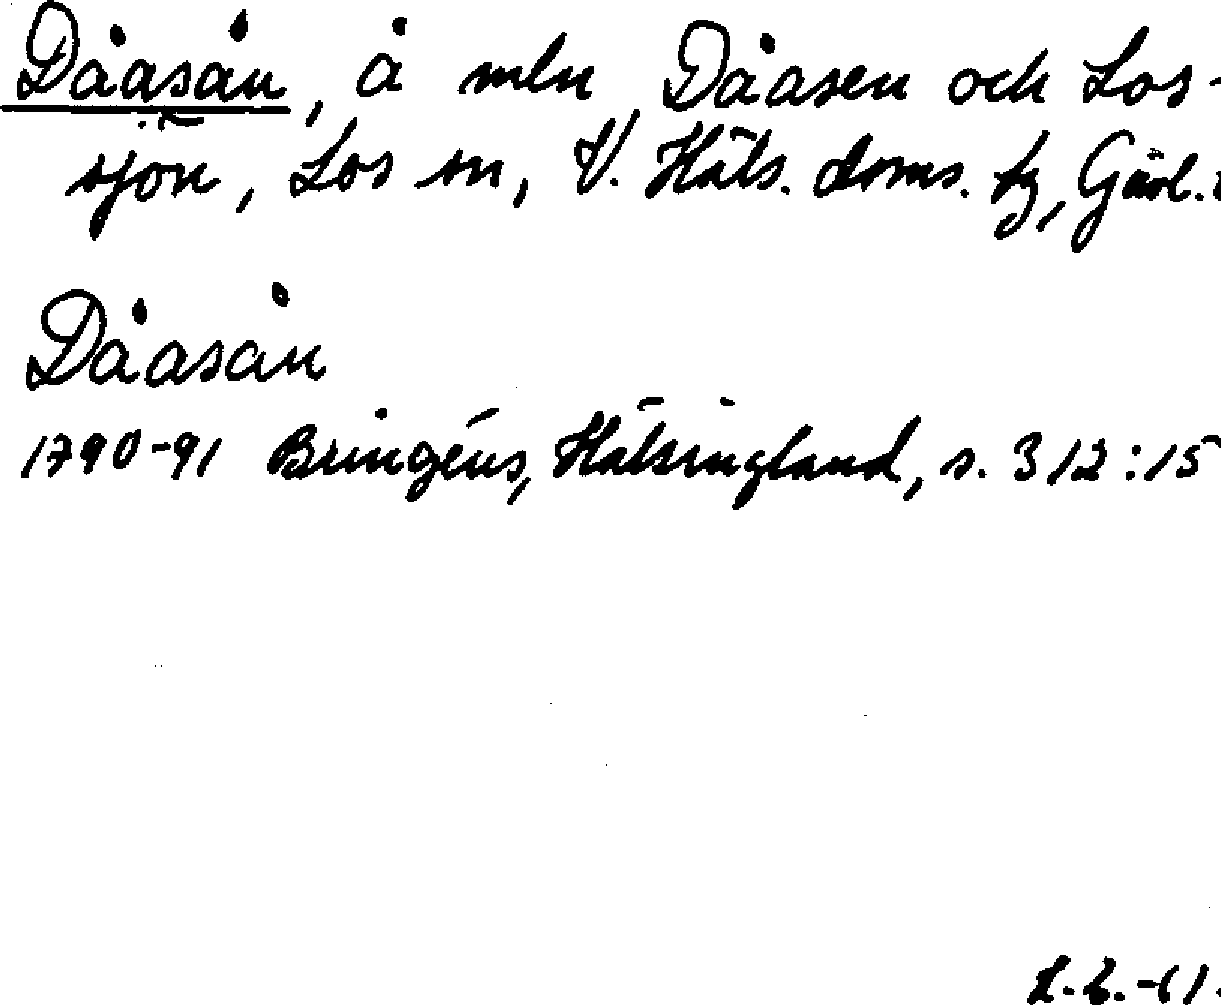 Dåasån, å mln Dåasen och Los-
sjön, Los sn, V. Häls. doms. tg, Gävl.
Dåasån
1790-91 Bringéus, Hälsingland, s. 312:15